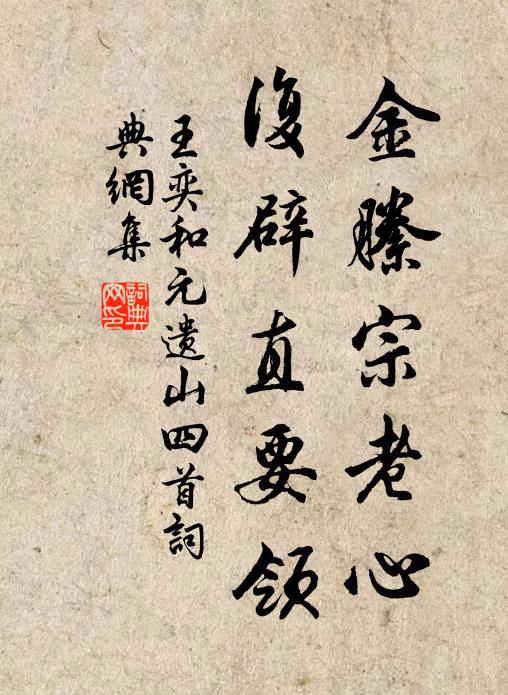 金縢宗老心
復辟直要領
王奕和元遺山四首詞
典網集
詞典網印